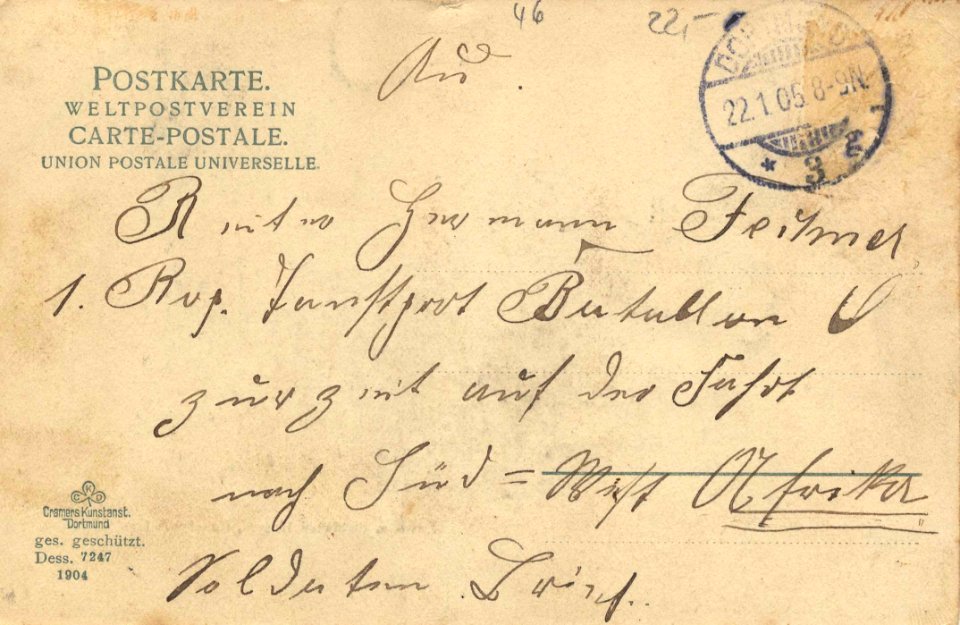 46
22,-
POSTKARTE.
WELTPOSTVEREIN
CARTE-POSTALE.
UNION POSTALE UNIVERSELLE.
An
DORTMUND
22.1.05 8-9N.
* 3 g
1
Reiter Hermann
1. Kop. Transport Batallon
zur zeit auf der Fahrt
nach Süd = West Afrika
Soldaten Brief.
K
Cramers Kunstanst.
Dortmund
ges. geschützt.
Dess. 7247
1904